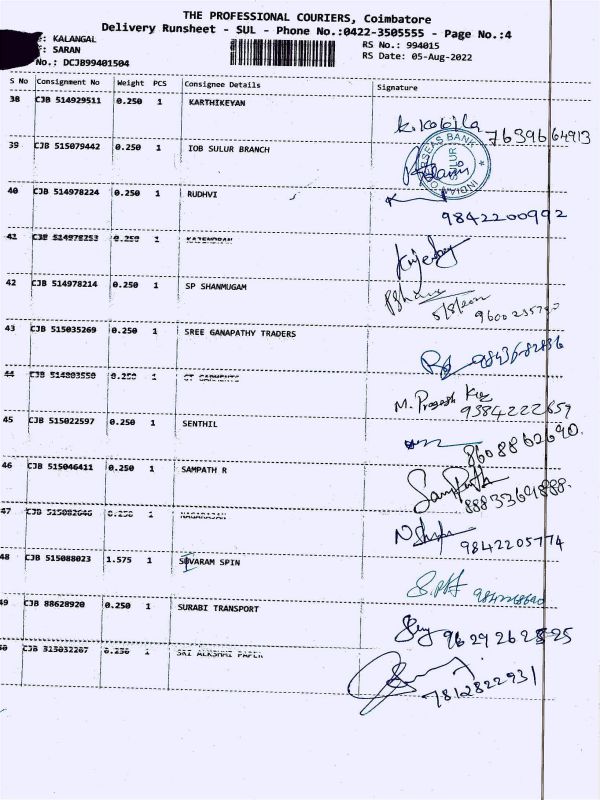 THE PROFESSIONAL COURIERS, Coimbatore
Delivery Runsheet - SUL - Phone No.:0422-3505555 - Page No.:4
: KALANGAL
: SARAN
No.: DCJB99401504
RS No.: 994015
RS Date: 05-Aug-2022
S No Consignment No Weight PCS Consignee Details Signature
38 CJB 514929511 0.250 1 KARTHIKEYAN
K. Kokila 7639664913
39 CJB 515079442 0.250 1 IOB SULUR BRANCH
INDIAN OVERSEAS BANK SULUR
40 CJB 514978224 0.250 1 RUDHVI
9842200992
41 CJB 514978253 0.250 1 RAJENDRAN
42 CJB 514978214 0.250 1 SP SHANMUGAM
43 CJB 515035269 0.250 1 SREE GANAPATHY TRADERS
44 CJB 514803550 0.250 1 GARMENTS
M. Prakash
9384222659
45 CJB 515022597 0.250 1 SENTHIL
8608862690.
46 CJB 515046411 0.250 1 SAMPATH R
Sampath
47 CJB 515082646 0.250 1 NAGARAJAN
9842205774
48 CJB 515088023 1.575 1 SUVARAM SPIN
49 CJB 88628920 0.250 1 SURABI TRANSPORT
1 SRI PAPER
7812822931